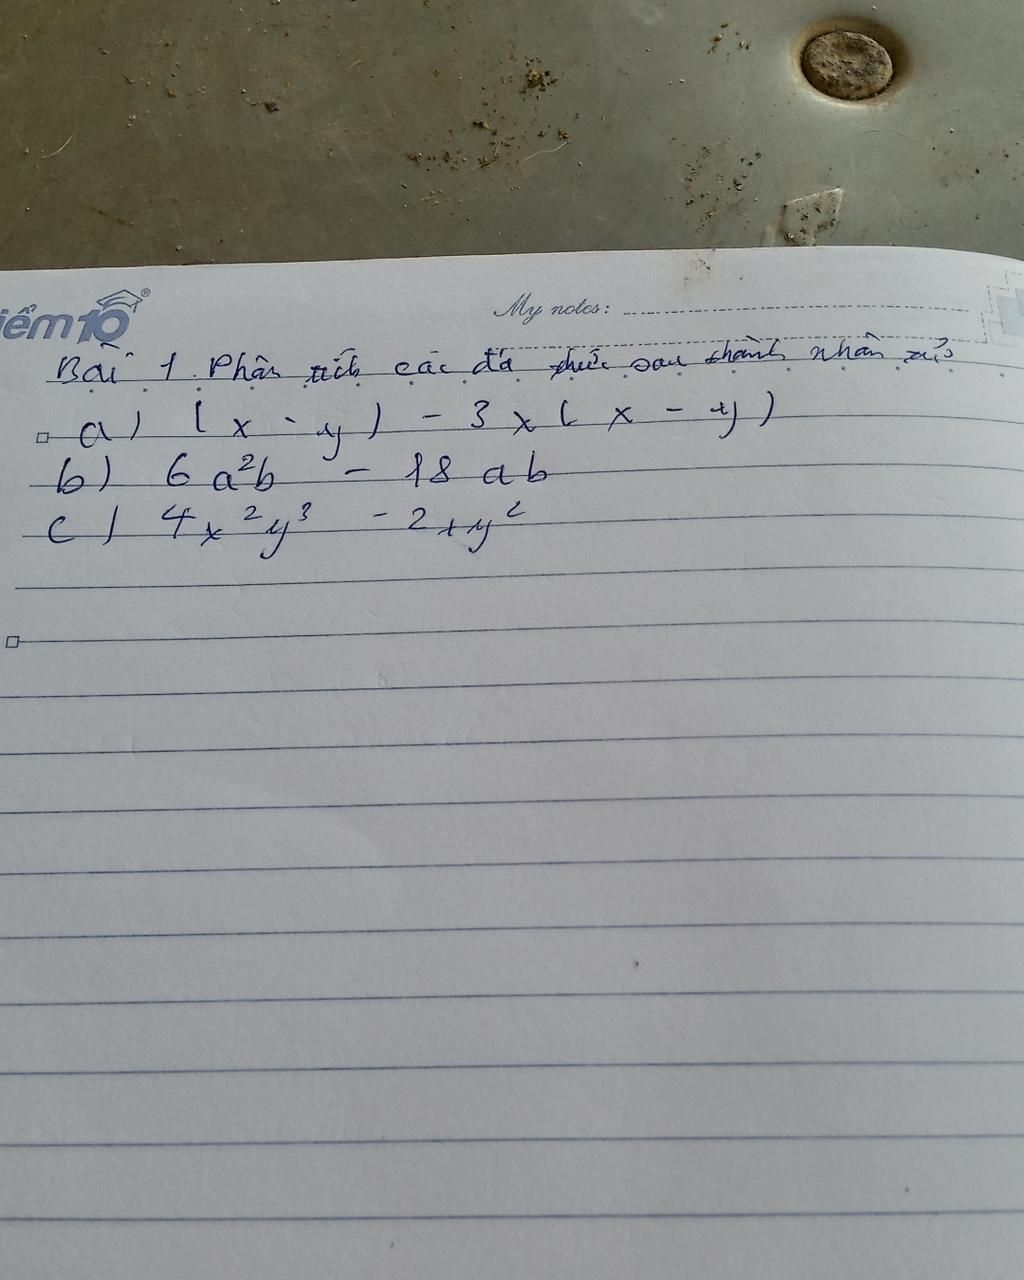 iểm10®
My notes:
Bài 1. Phân tích các đa thức sau thành nhân tử
a) (x - y) - 3x(x - y)
b) 6a²b - 18ab
c) 4x²y³ - 2xy²